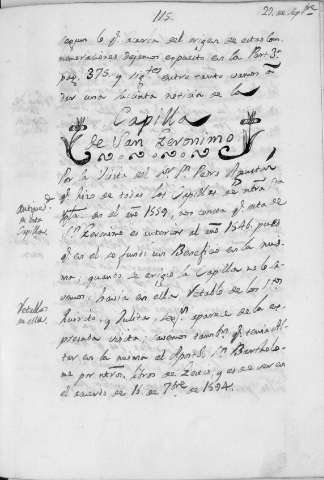 115.
27. de Sep.bre
segun lo q.e acerca del origen de estas Con
memoraciones dejamos expuesto en la Part. 3.a
pag. 373. y sig.tes entre tanto vamos á
dar una sucinta noticia de la
Capilla
de San Geronimo
Por la Visita del Mt.o D.n Pedro Agustin
q.e hizo de todas las Capillas de ntra
Igla. en el año 1559, nos consta q.e esta de
S.n Geronimo es anterior al año 1546, pues
q.e en el se fundó un Beneficio en la mis
ma, quando se erigió la Capilla no lo sa
vemos; havia en ella Retablo de los S.tos
Quirico, y Julita, seg.n aparece de la ex
presada visita; savemos tambien q.e tenia Al
tar en la misma el Apostol S.n Bartholo
me por ntros. libros de y es de ver en
el de 15 de 7bre de 1594.
Antigued.d
de esta
Capilla.
Retablo
en ella.